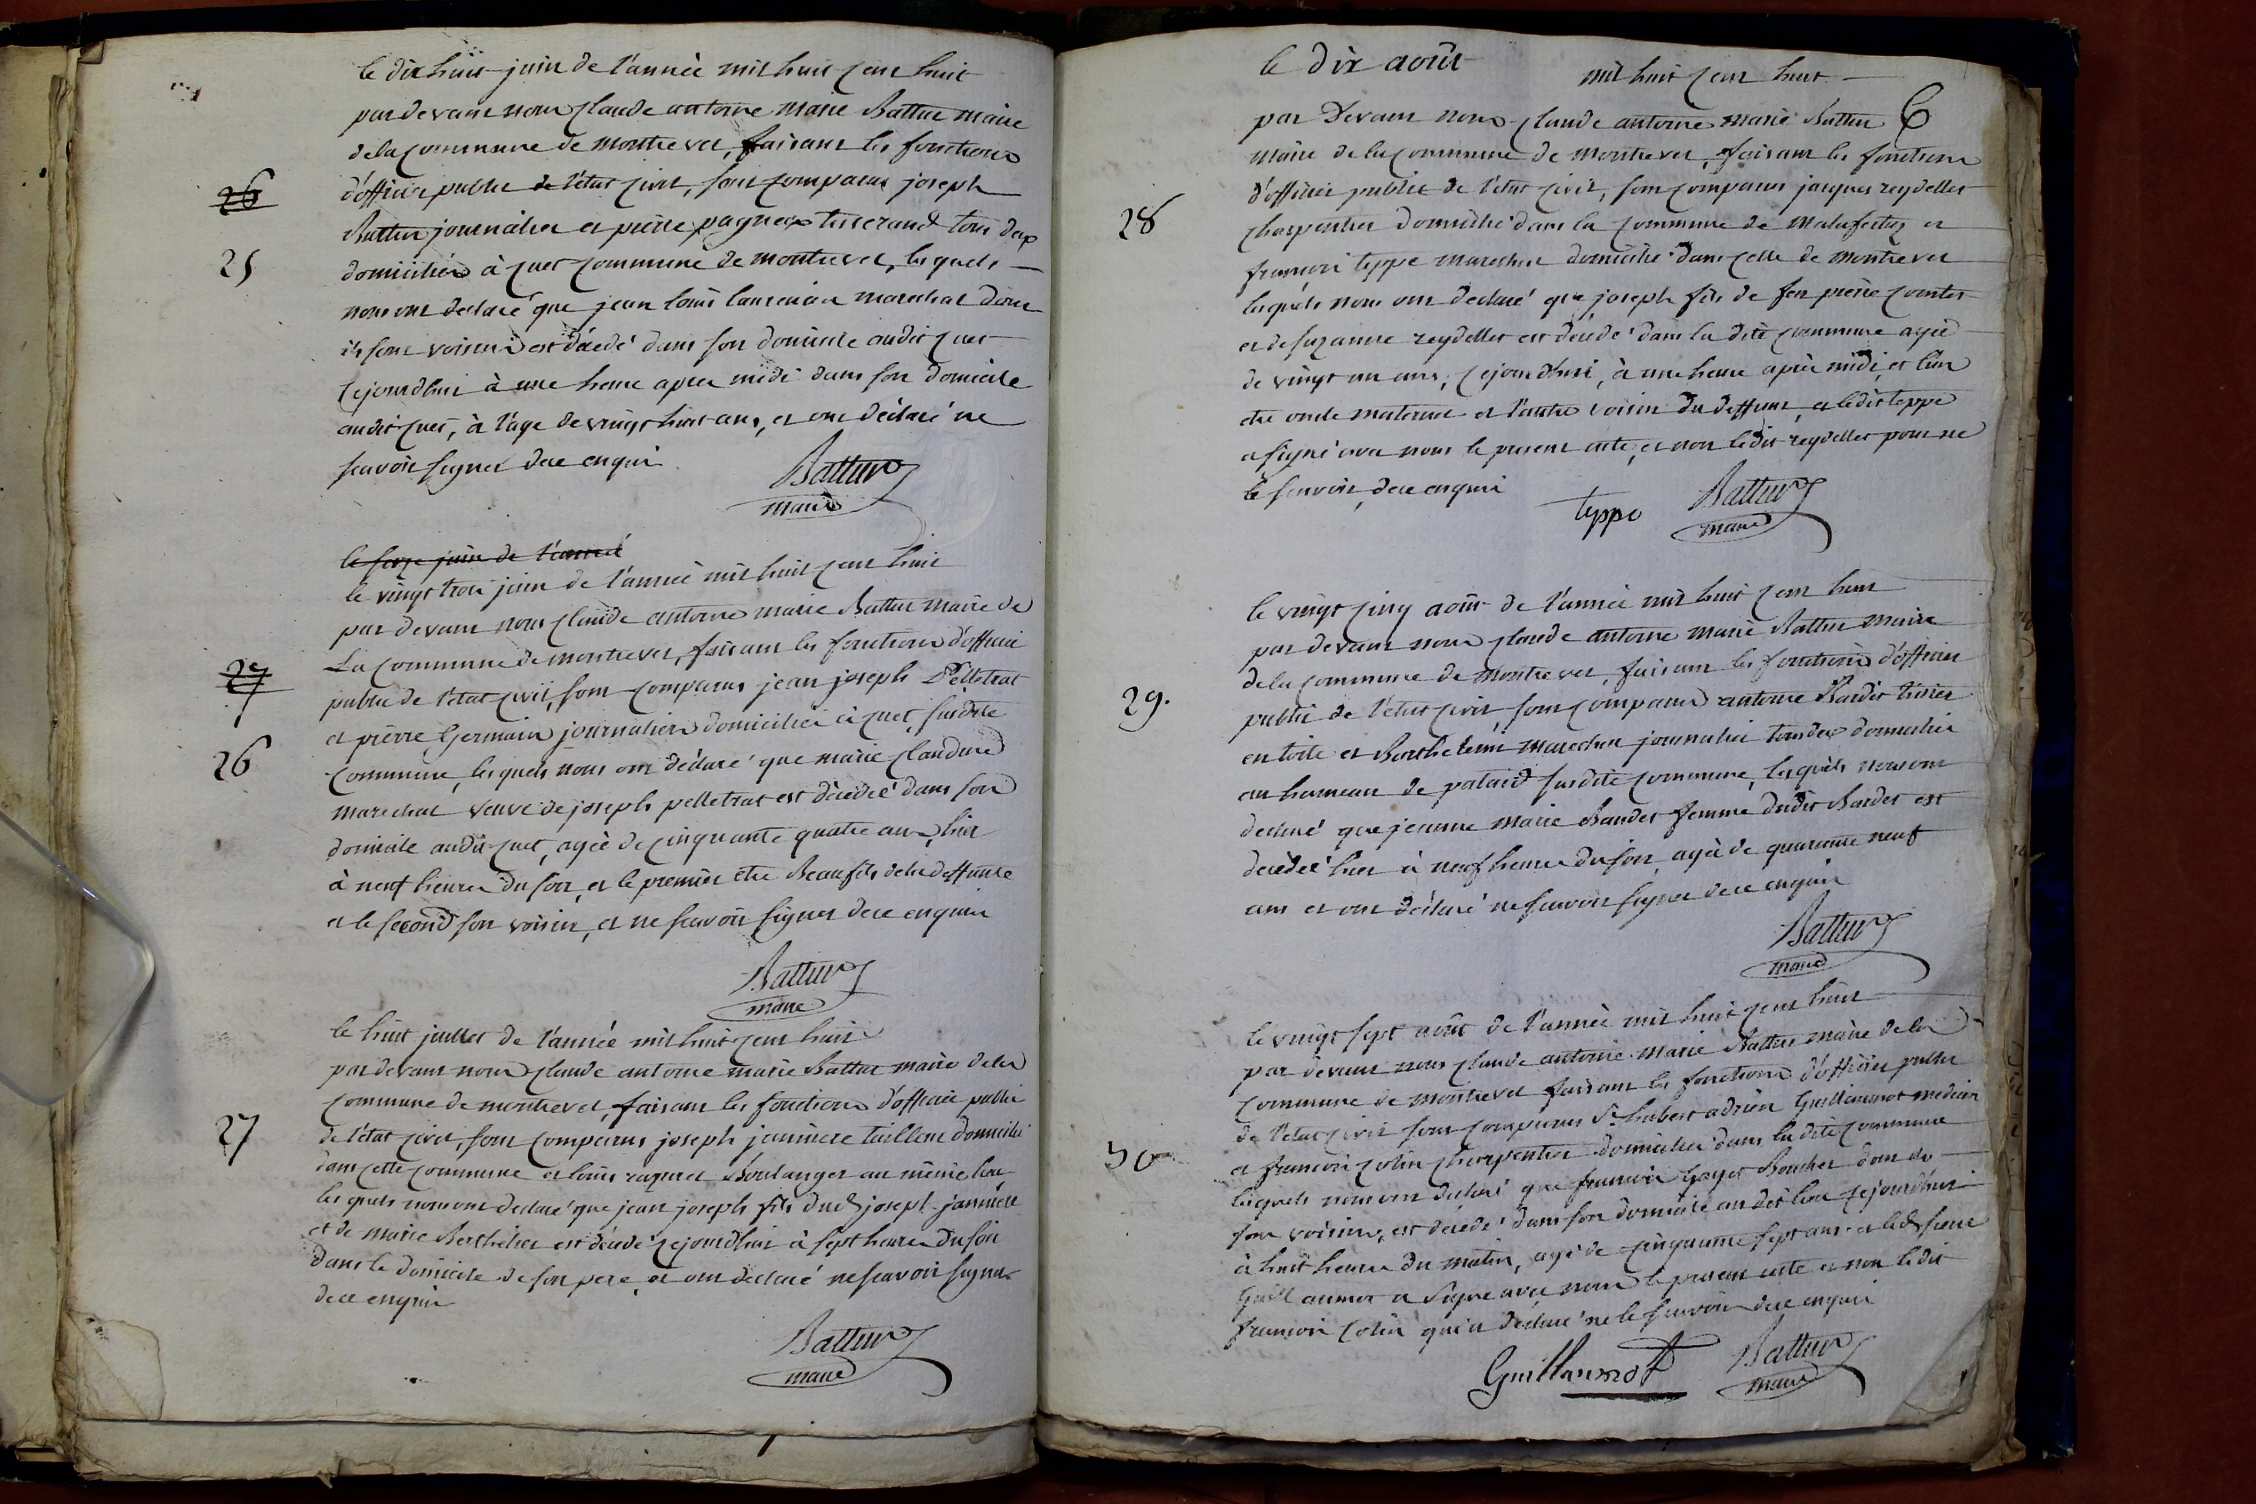 le dix huit juin de l'année mil huit cent huit
par devant nous Claude antoine Marie Battur maire
de la commune de montrevel, faisant les fonctions
26
d'officier public de l'état civil, sont comparus joseph
Buttin journalier et pierre pagneux tisserand tous deux
25
domiciliés à cuet commune de montrevel, lesquels
nous ont declaré que jean louis marechal dont
ils sont voisins est décédé dans son domicile audit cuet
cejourdhui à une heure apres midi dans son domicile
audit cuet, à l'age de vingt huit ans, et ont déclaré ne
scavoir signer de ce enquis
Battur
maire
le seize juin de l'année
le vingt trois juin de l'année mil huit cent huit
par devant nous Claude antoine marie Battur maire de
La commune de montrevel, faisant les fonctions d'officier
27
public de l'etat civil, sont comparus jean joseph Pelletrat
et pierre Germain journaliers domiciliés à cuet, susdite
26
commune, lesquels nous ont déclaré que marie Claudine
marechal veuve de joseph pelletrat est décédée dans son
domicile audit cuet, agée de cinquante quatre ans, hier
à neuf heures du soir, et le premier etre Beaufils de la deffunte
et le second son voisin, et ne scavoir signer de ce enquis
Battur
maire
le huit juillet de l'année mil huit cent huit
par devant nous Claude antoine marie Battur maire de la
commune de montrevel, faisant les fonctions d'officier public
27
de l'état civil, sont comparus joseph janniere tailleur domicilié
dans cette commune et louis raquet Boulanger au même lieu,
lesquels nous ont declaré que jean joseph fils dud. joseph janniere
et de marie Berthelier est décédé cejourdhui à sept heures du soir
dans le domicile de son pere, et ont declaré ne scavoir signer
de ce enquis
Battur
maire
le dix août mil huit cent huit
6
par Devant nous Claude antoine marie Battur
maire de la commune de montrevel, faisant les fonctions
d'officier public de l'etat civil, sont comparus jacques reydellet
28
charpentier domicilié dans la commune de Malafretaz et
françois teppe marechal domicilié dans celle de montrevel
lesquels nous ont declaré que joseph fils de feu pierre
et de suzanne reydellet est décédé dans la dite commune agé
de vingt un ans, cejourdhui, à une heure après midi, et l'un
etre oncle maternel et l'autre voisin du deffunt, et ledit teppe
a signé avec nous le present acte, et non ledit reydellet pour ne
le scavoir, de ce enquis
teppe
Battur
maire
le vingt cinq août de l'année mil huit cent huit
par devant nous Claude antoine marie Battur maire
de la commune de montrevel, faisant les fonctions d'officier
29.
public de l'état civil, sont comparus antoine Bardet tissier
en toile et Barthelemi marechal journalier tous deux domiciliés
au hameau de susdite commune, lesquels nous ont
declaré que jeanne marie femme dudit Bardet est
décédée hier à neuf heures du soir, agée de quarante neuf
ans et ont déclaré ne scavoir signer de ce enquis
Battur
maire
le vingt sept août de l'année mil huit cent huit
par devant nous Claude antoine marie Battur maire de la
commune de montrevel faisant les fonctions d'officier public
de l'etat civil sont comparus Sr. hubert adrien Guillaumot medecin
30
et francois colin charpentier domiciliés dans la dite commune
lesquels nous ont declaré que francois Boucher dont ils
sont voisins, est décédé dans son domicile audit lieu cejourdhui
à huit heures du matin, agé de cinquante sept ans et led. sieur
Guillaumot a signé avec nous le present acte et non ledit
francois colin qui a declaré ne le scavoir de ce enquis
Guillaumot
Battur
maire